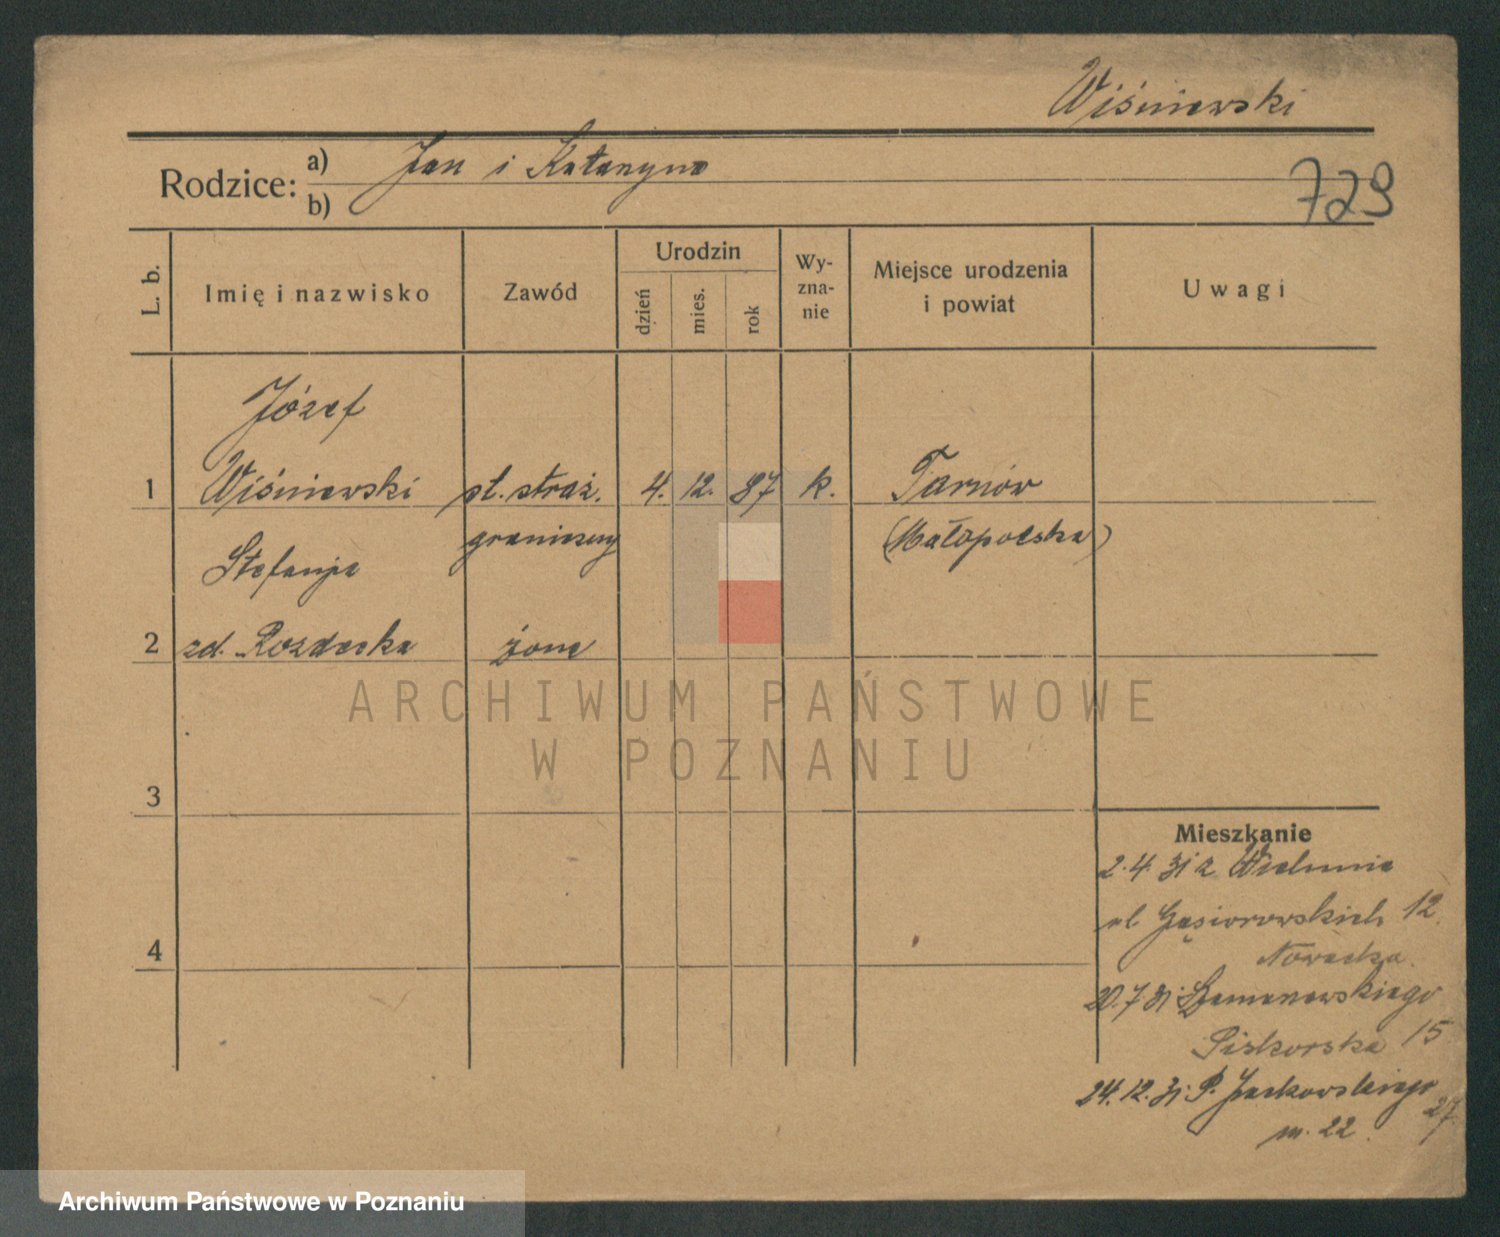 Wiśniewski
Rodzice: a) Jan i Katarzyna
b)
729
L. b.
Imię i nazwisko
Zawód
Urodzin
dzień
mies.
rok
Wy-
zna-
nie
Miejsce urodzenia
i powiat
Uwagi
Józef
1 Wiśniewski st. straż. 4. 12. 87 k. Tarnów
graniczny (Małopolska)
Stefanja
2 zd. Rozdecka żona
ARCHIWUM PAŃSTWOWE
W POZNANIU
3
4
Mieszkanie
2.4.31 z Wielunia
ul Gąsiorowskich 12.
Nowacka.
20.7.31. Szamarzewskiego
Piskorska 15
24.12.31. P. Jackowskiego
27
m. 22.
Archiwum Państwowe w Poznaniu